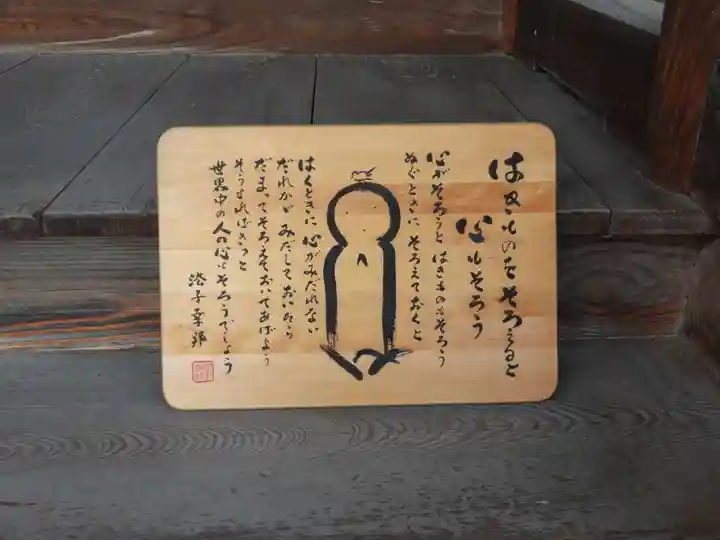 はきものをそろえると
心もそろう
心がそろうと はきものもそろう
ぬぐときに そろえておくと
はくときに 心がみだれない
だれかが みだして おいたら
だまって そろえておいてあげよう
そうすればきっと
世界中の人の心もそろうでしょう